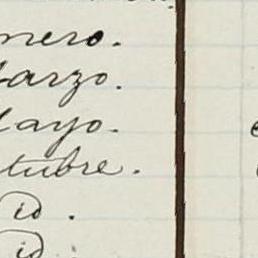 nero.
arzo.
ayo.
tubre.
id.
id.